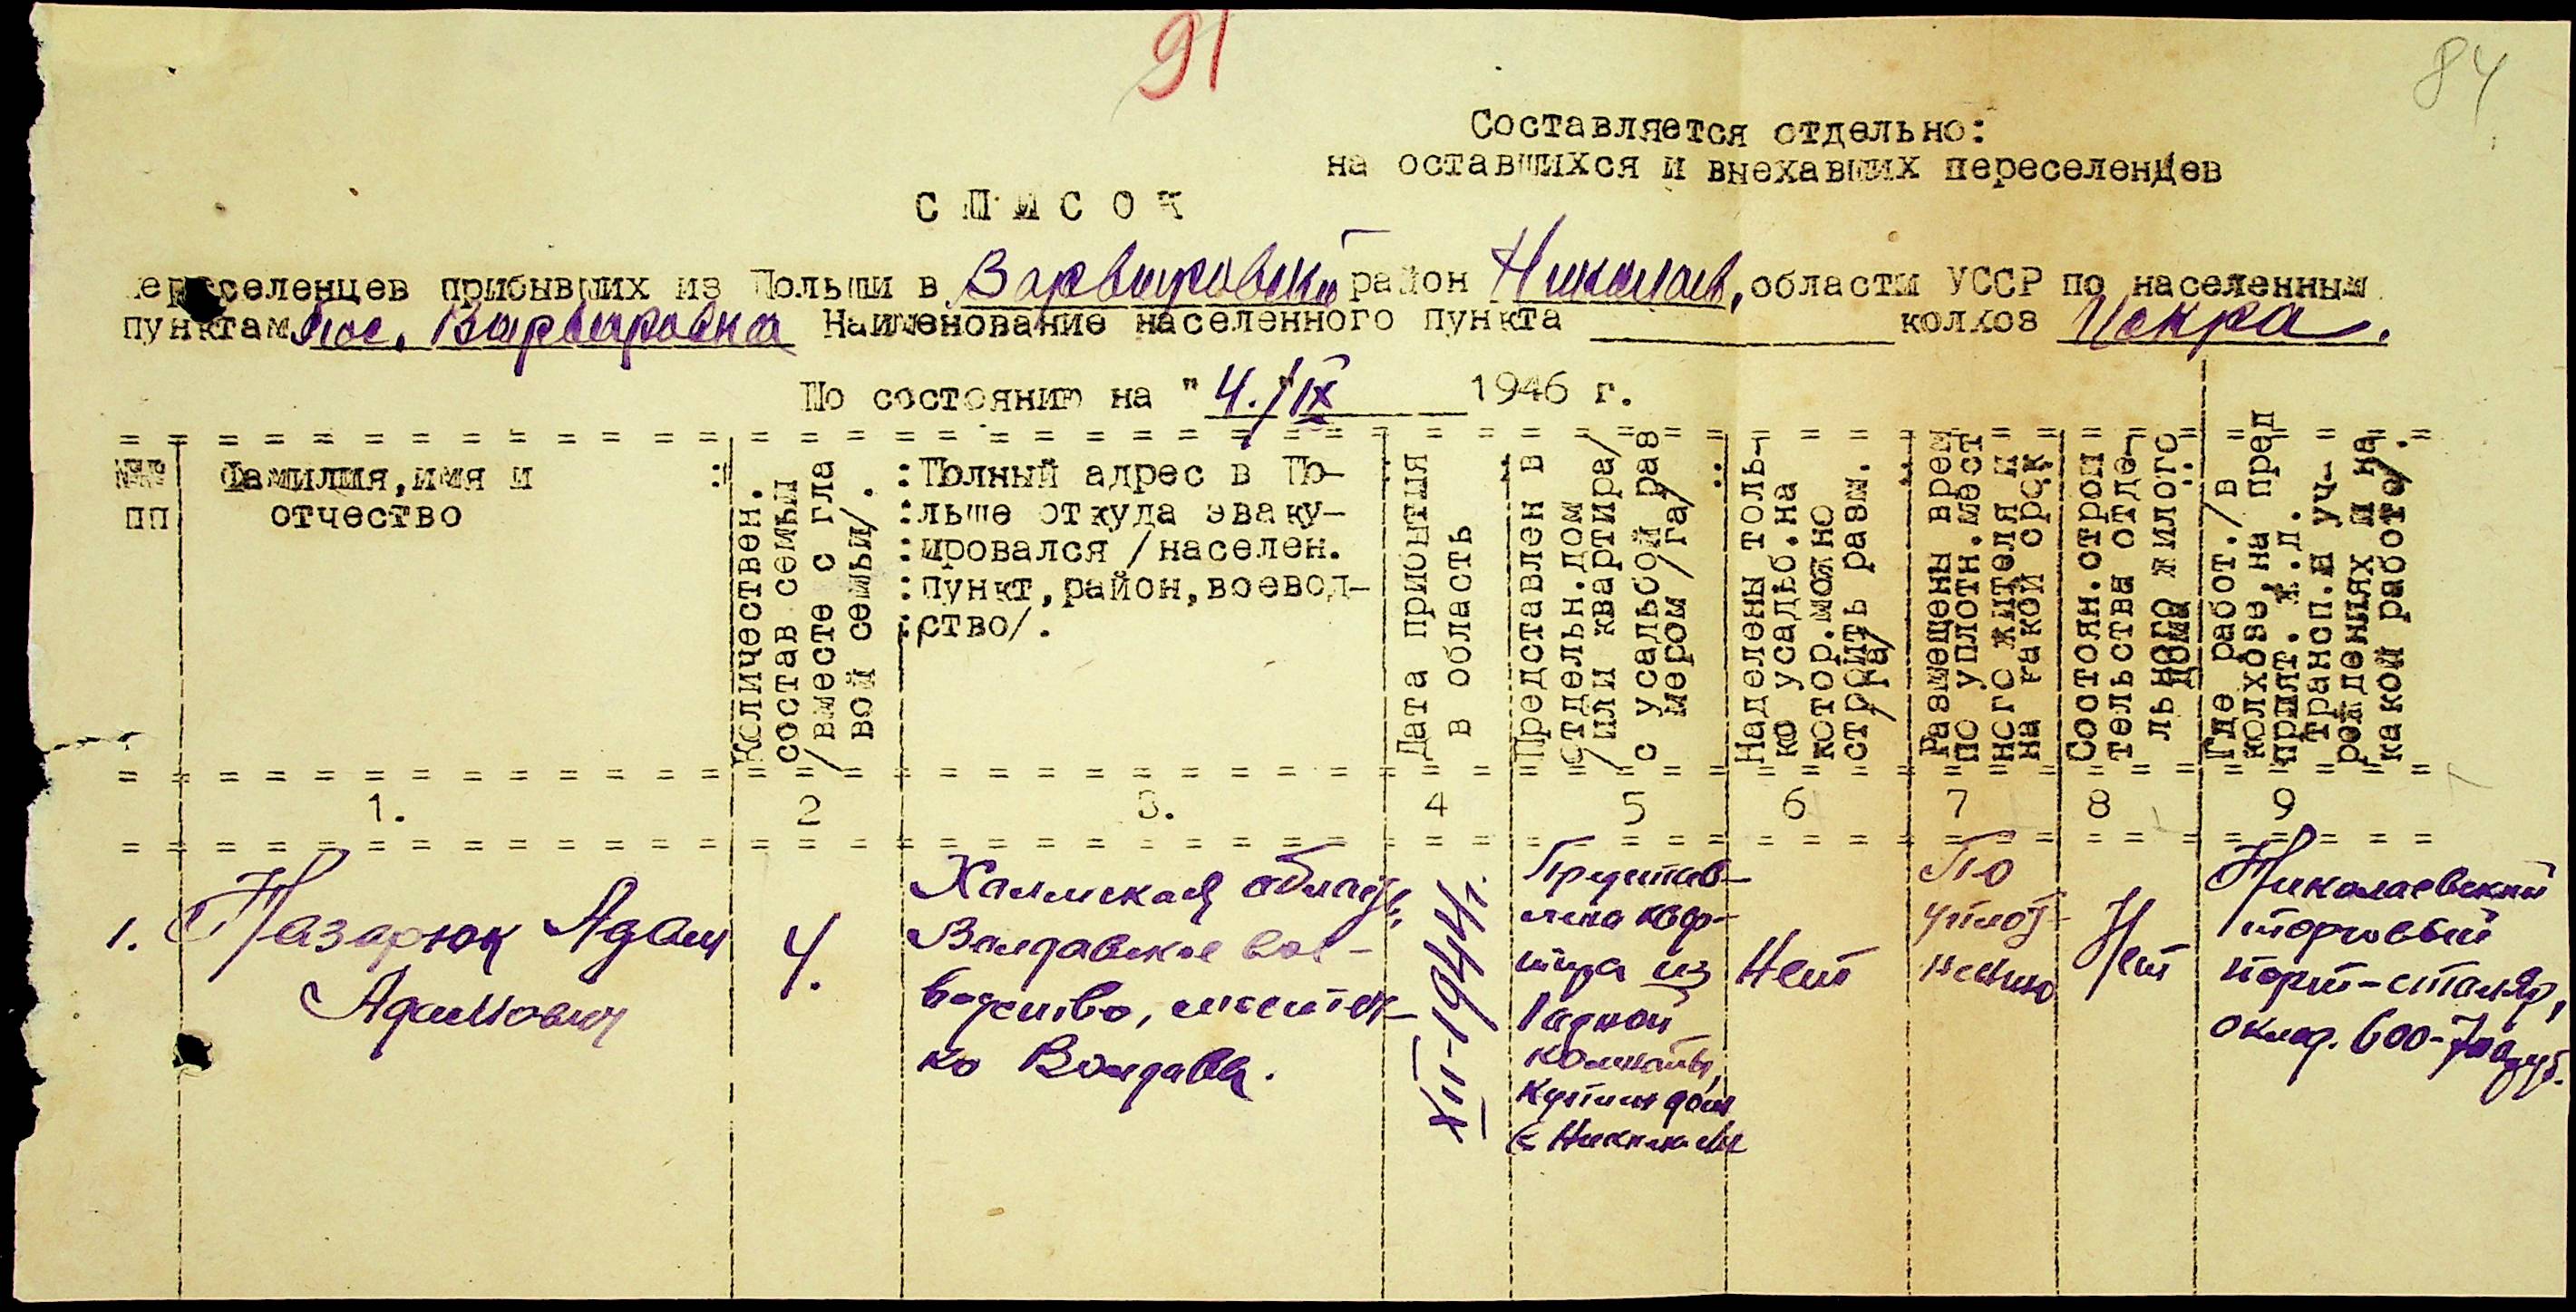 91
84
Составляется отдельно:
на оставшихся и внехавших переселенцев
С П И С О К
переселенцев прибывших из Польши в Варваровский район Николаев. области УССР по населенным
пунктам пос. Варваровка Наименование населенного пункта колхоз Искра.
По состоянию на "4./"IX 1946 г.
№№
пп
Фамилия, имя и
отчество
Количествен.
состав семьи
/вместе с гла
вой семьи/.
:Полный адрес в По-
:льше откуда эваку-
:ировался /населен.
:пункт, район, воевод-
:ство/.
Дата прибытия
в область
Представлен в
отдельн. дом
/или квартира/
с усадьбой раз
мером /га/
Наделены толь-
ко усадьб. на
котор. можно
строить разм.
/га/
Размещены врем
по уплотн. мест
ного жителя и
на какой срок
Состоян. строи
тельства отде-
льного жилого
дома
Где работ./в
колхозе, на пред
прият. ж.д.
трансп. и уч-
реждениях и на
какой работе/.
1. 2 3. 4 5 6 7 8 9
1. Назарюк Адам
Адамович
4.
Холмская область,
Влодавское вое-
водство, местеч-
ко Влодава.
XII-1944 г.
Представ-
лена квар-
тира из
1 одной
комнаты,
купили дом
в Николаеве
Нет
По
уплот-
нению
Нет
Николаевский
торговый
порт-столяр,
оклад. 600-700 руб.